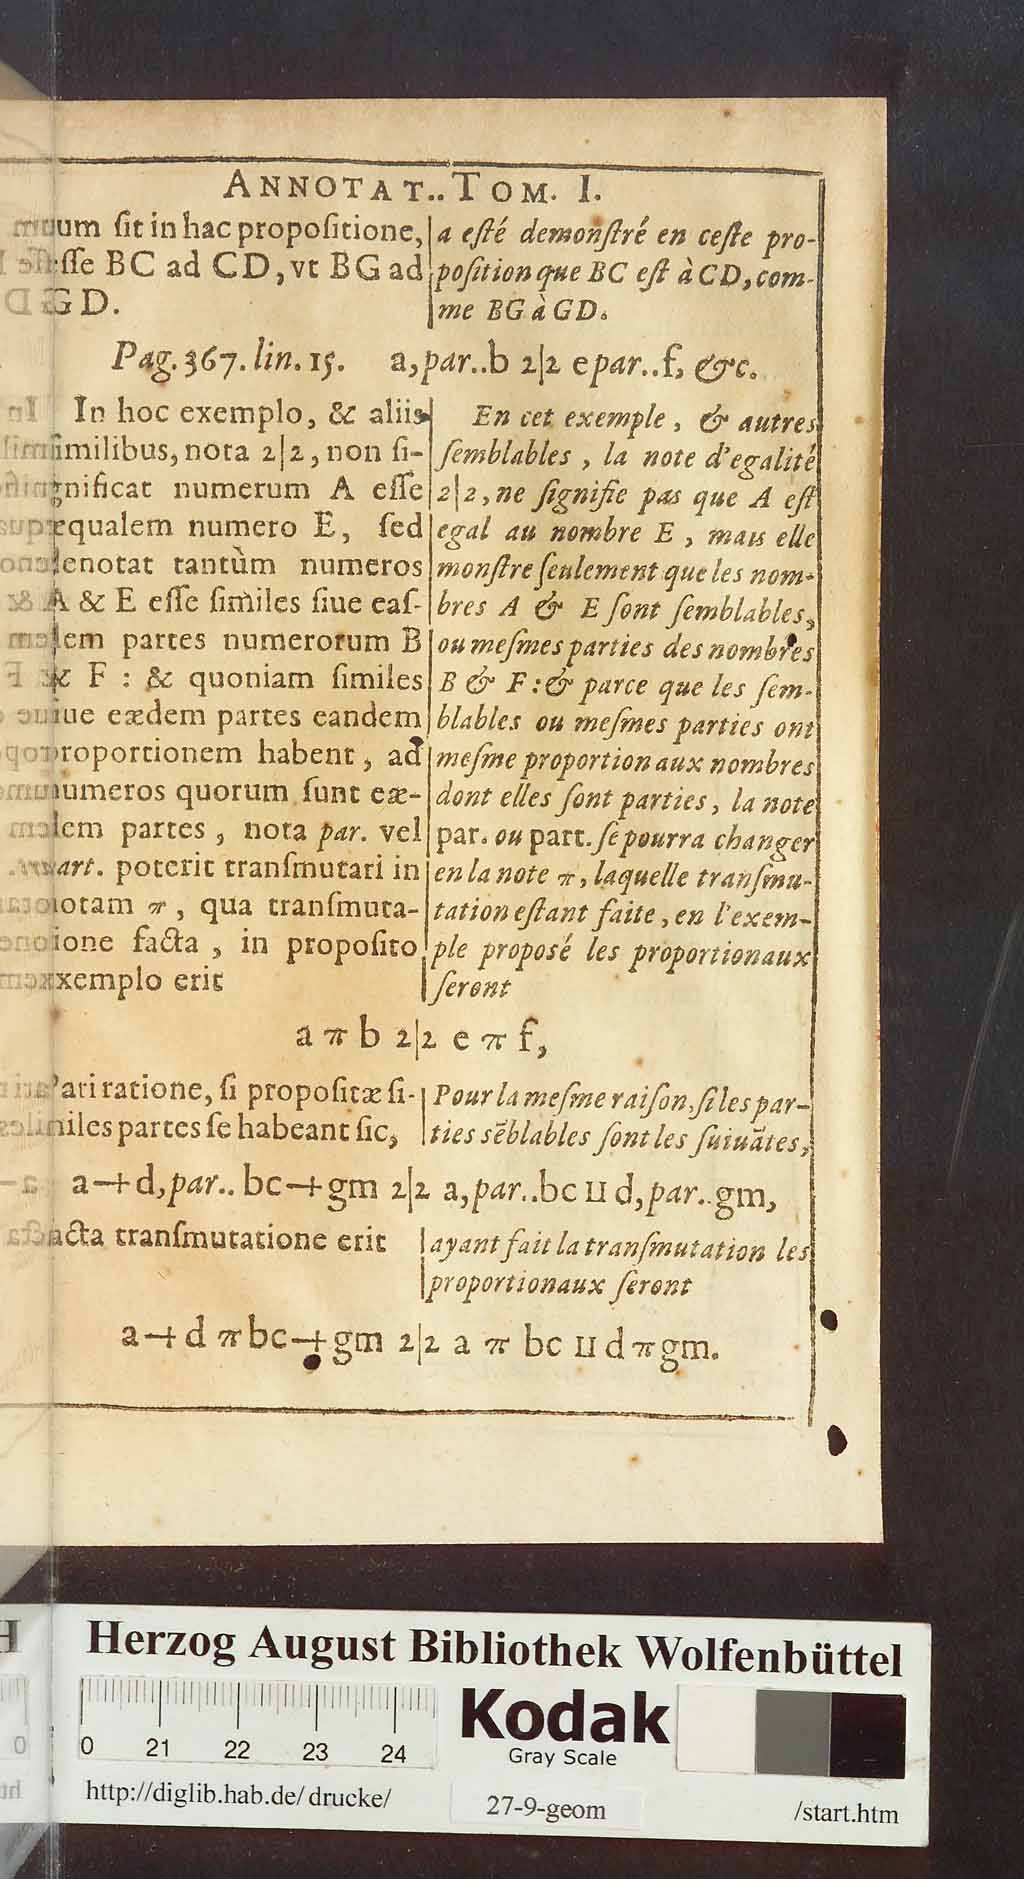 ANNOTAT.. TOM. I.
uum ſit in hac propoſitione,
ſſe BC ad CD, vt BG ad
GD.
a eſté demonſtré en ceſte pro-
poſition que BC eſt à CD, com-
me BG à GD.
Pag. 367. lin. 15. a, par.. b 2|2 e par.. f, &c.
In hoc exemplo, & aliis
ſimilibus, nota 2|2, non ſi-
gnificat numerum A eſſe
æqualem numero E, ſed
denotat tantùm numeros
A & E eſſe ſimiles ſiue eaſ-
dem partes numerorum B
& F : & quoniam ſimiles
ſiue eædem partes eandem
proportionem habent, ad
numeros quorum ſunt eæ-
dem partes, nota par. vel
part. poterit tranſmutari in
notam π, qua tranſmuta-
tione facta, in propoſito
exemplo erit
En cet exemple, & autres
ſemblables, la note d'egalité
2|2, ne ſignifie pas que A eſt
egal au nombre E, mais elle
monſtre ſeulement que les nom-
bres A & E ſont ſemblables,
ou meſmes parties des nombres
B & F : & parce que les ſem-
blables ou meſmes parties ont
meſme proportion aux nombres
dont elles ſont parties, la note
par. ou part. ſe pourra changer
en la note π, laquelle tranſmu-
tation eſtant faite, en l'exem-
ple propoſé les proportionaux
ſeront
a π b 2|2 e π f,
Pari ratione, ſi propoſitæ ſi-
miles partes ſe habeant ſic,
Pour la meſme raiſon, ſi les par-
ties sēblables ſont les ſuiuātes,
a + d, par.. bc + gm 2|2 a, par.. bc II d, par.. gm,
facta tranſmutatione erit
ayant fait la tranſmutation les
proportionaux ſeront
a + d π bc + gm 2|2 a π bc II d π gm.
Herzog August Bibliothek Wolfenbüttel
0 21 22 23 24
Kodak
Gray Scale
http://diglib.hab.de/drucke/
27-9-geom
/start.htm